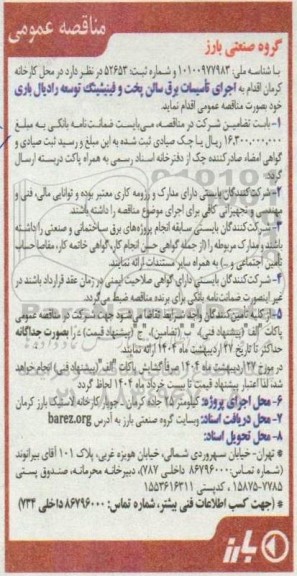 مناقصه عمومی
گروه صنعتی بارز
با شناسه ملی: ۱۰۱۰۰۹۷۷۹۸۳ و شماره ثبت: ۵۲۶۵۳ در نظر دارد در محل کارخانه
کرمان اقدام به اجرای تأسیسات برق سالن پخت و فینیشینگ توسعه رادیال باری
خود بصورت مناقصه عمومی اقدام نماید.
۱- بابت تضامین شرکت در مناقصه، می‌بایست ضمانت‌نامه بانکی به مبلغ
۱۶,۳۰۰,۰۰۰,۰۰۰ ریال یا چک صیادی ثبت شده به این مبلغ و رسید ثبت صیادی و
گواهی امضاء صادر کننده چک از دفترخانه اسناد رسمی به همراه پاکت دربسته ارسال
گردد.
۲- شرکت‌کنندگان بایستی دارای مدارک و رزومه کاری معتبر بوده و توانایی مالی، فنی و
مهندسی و تجهیزاتی کافی برای اجرای موضوع مناقصه را داشته باشند.
۳- شرکت‌کنندگان بایستی سابقه انجام پروژه‌های برق ساختمانی و صنعتی را داشته
باشند و مدارک مربوطه را (از جمله گواهی حسن انجام کار، گواهی خاتمه کار، مفاصا حساب
تأمین اجتماعی و ...) به همراه سایر مستندات ارائه نمایند.
۴- شرکت‌کنندگان بایستی دارای گواهی صلاحیت ایمنی در زمان عقد قرارداد باشند در
غیر اینصورت ضمانت‌نامه بانکی برای برنده مناقصه ضبط می‌گردد.
۵- از کلیه تأمین‌کنندگان واجد شرایط تقاضا می‌شود جهت شرکت در مناقصه عمومی
پاکات "الف" (پیشنهاد فنی)، "ب" (تضامین)، "ج" (پیشنهاد قیمت) را بصورت جداگانه
حداکثر تا تاریخ ۲۷ اردیبهشت ماه ۱۴۰۴ ارائه نمایند.
در مورخ ۲۷ اردیبهشت ماه ۱۴۰۴ صرفاً گشایش پاکات "الف" (پیشنهاد فنی) انجام خواهد
شد، لذا اعتبار پیشنهاد قیمت تا بیست خرداد ماه ۱۴۰۴ لحاظ گردد.
۶- محل اجرای پروژه: کیلومتر ۲۵ جاده کرمان - جوپار کارخانه لاستیک بارز کرمان
۷- محل دریافت اسناد: وبسایت گروه صنعتی بارز به آدرس barez.org
۸- محل تحویل اسناد:
* تهران- خیابان سهروردی شمالی، خیابان هویزه غربی، پلاک ۱۰۱ آقای بیرانوند
(شماره تماس: ۸۶۷۹۶۰۰۰ داخلی ۷۸۷)، دبیرخانه محرمانه، صندوق پستی
۷۷۸۵-۱۵۸۷۵، کدپستی ۱۵۵۳۶۱۶۳۱۱
* (جهت کسب اطلاعات فنی بیشتر، شماره تماس: ۸۶۷۹۶۰۰۰ داخلی ۷۳۴)
بارز